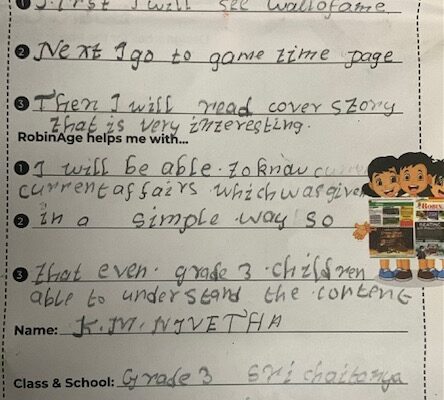 ❶ First I will see wallofame
❷ Next I go to game time page
❸ Then I will read cover story
that is very interesting.
RobinAge helps me with...
❶ I will be able to know
current affairs which was given
❷ in a simple way so
❸ that even grade 3 children
able to understand the content
Name: K.M. NIVETHA
Class & School: Grade 3 Sri chaitanya
ROBIN